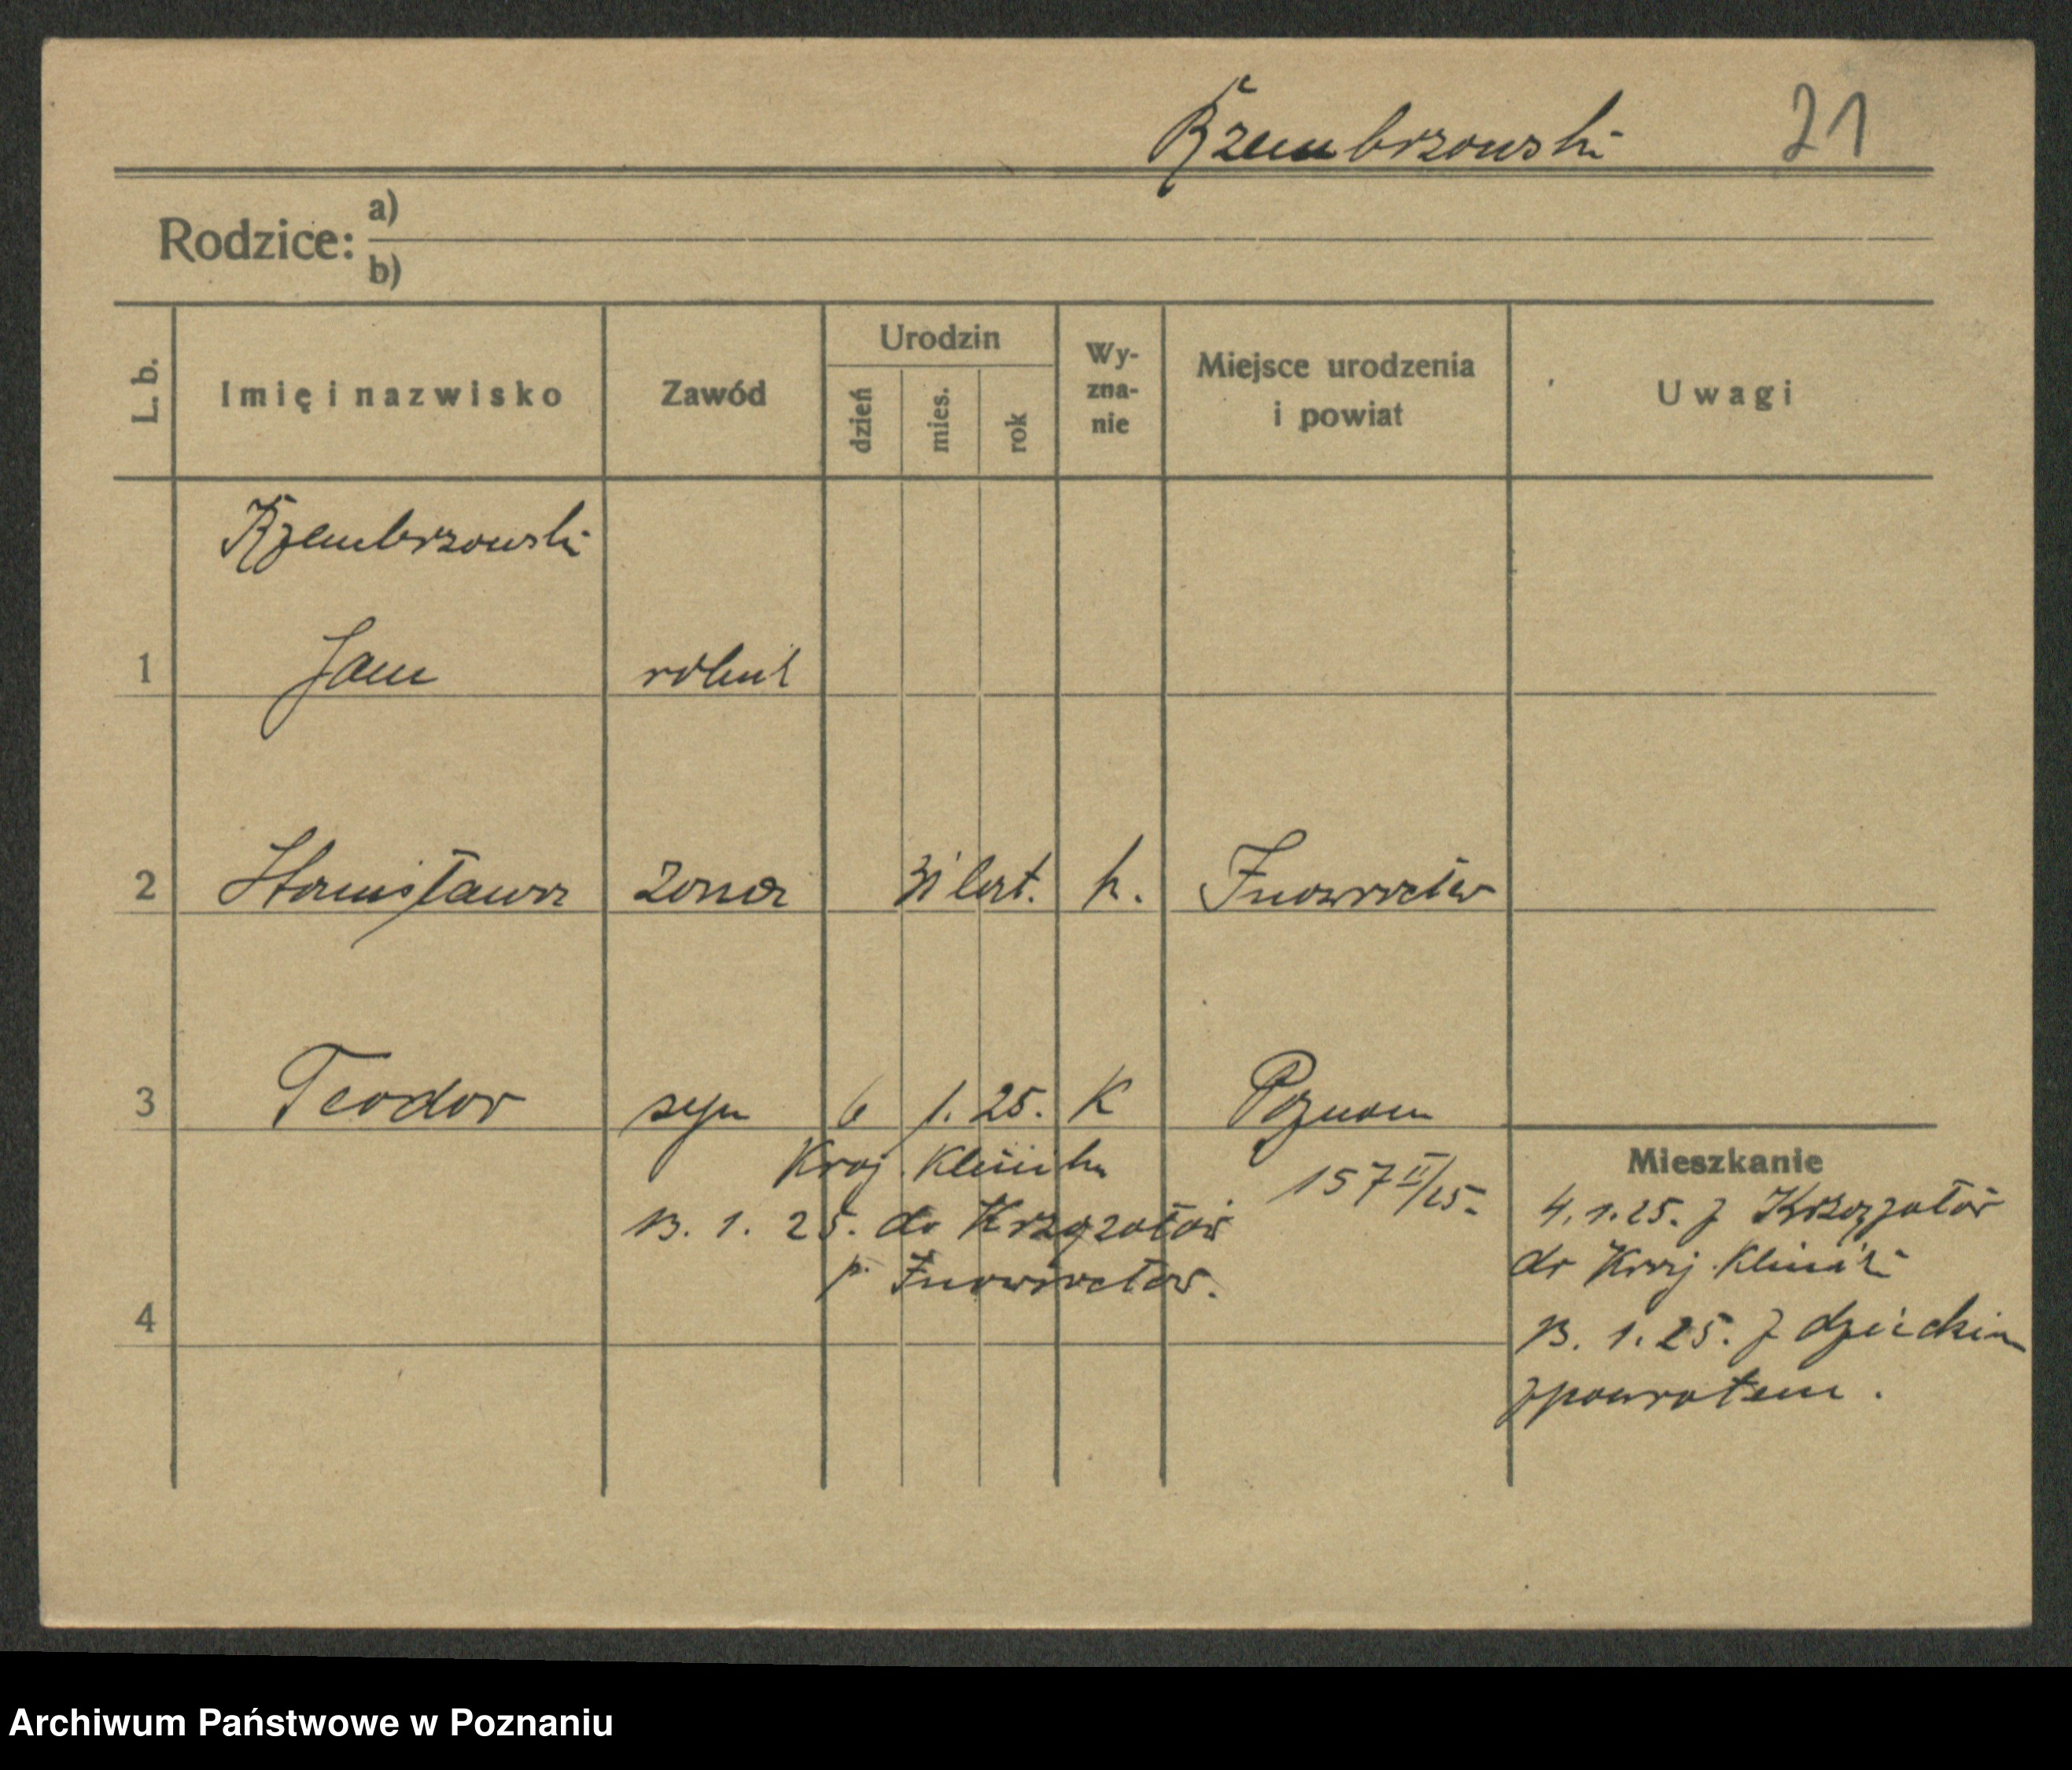 Rzembrzowski 21
Rodzice: a)
b)
L. b. Imię i nazwisko Zawód Urodzin dzień mies. rok Wy-zna-nie Miejsce urodzenia i powiat Uwagi
Rzembrzowski
1 Jan robut
2 Stanisława żona 31 lat. k. Inowrocław
3 Teodor syn 6 1. 25. K Poznan
Mieszkanie
Kraj. Klinika
157 II/25.
13. 1. 25. do
p. Inowrocław.
4
4. 1. 25. z
do Kraj. Kliniki
13. 1. 25. z dzieckiem
zpowrotem.
Archiwum Państwowe w Poznaniu